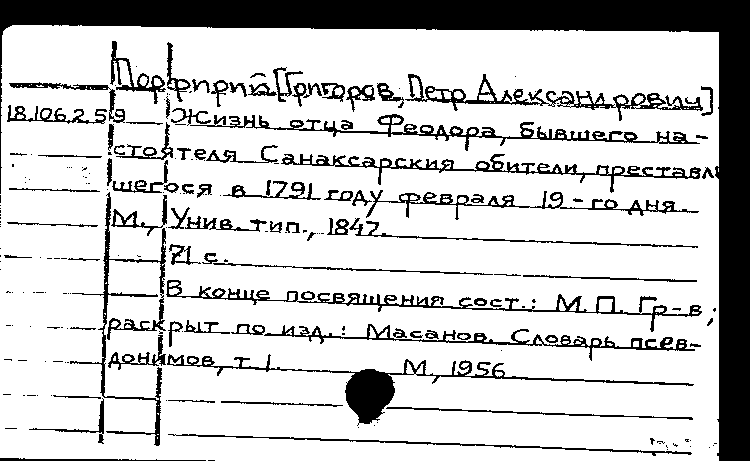 Порфирий [Григоров, Петр Александрович]
18.106.2.59 Жизнь отца Феодора, бывшего на-
стоятеля Санаксарския обители, преставль
шегося в 1791 году февраля 19-го дня.
М., Унив. тип., 1847.
71 с.
В конце посвящения сост.: М.П. Гр-в;
раскрыт по изд.: Масанов. Словарь псев-
донимов, т. 1. М, 1956